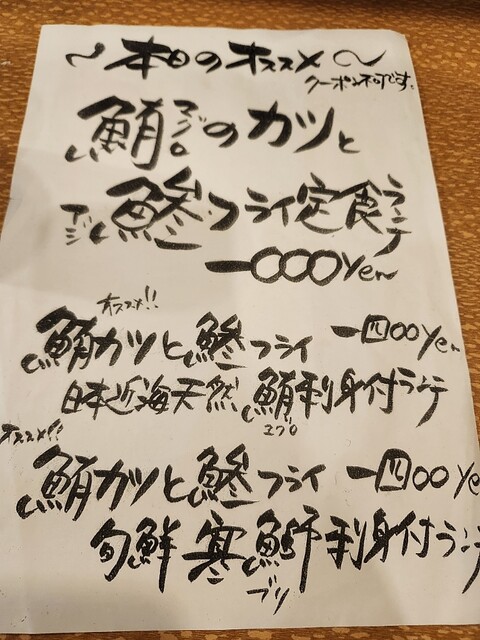 〜本日のオススメ〜
クーポン不可です。
鮪マグロのカツと
アジ鯵フライ定食ランチ
一〇〇〇yen
オススメ!!
鮪カツと鯵フライ 一四〇〇yen
日本近海天然鮪刺身付ランチ
オススメ!!
鮪カツと鯵フライ 一四〇〇ye
旬鮮寒鰤刺身付ランチ
ブリ